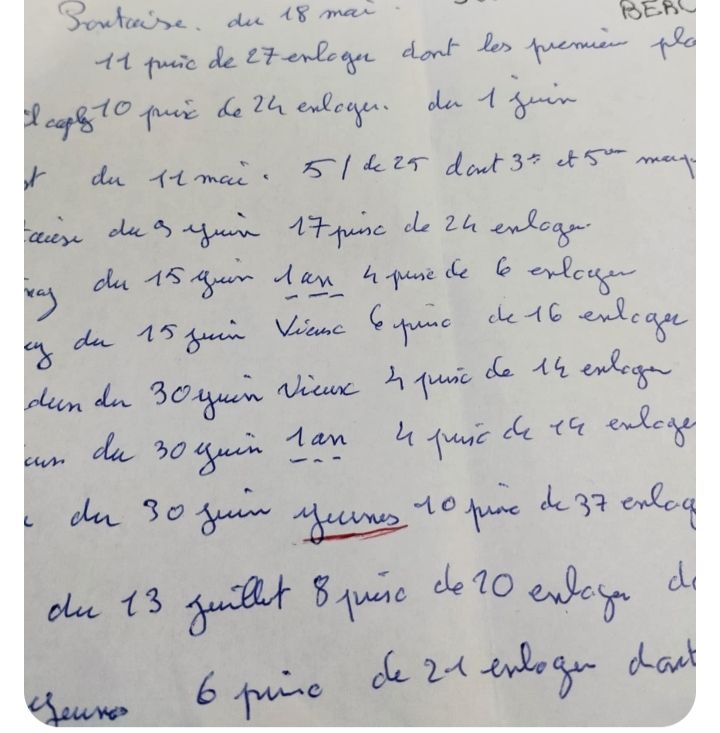 Pontoise. du 18 mai. BEBC
11 prix de 27 enloger dont les premier pla
10 prix de 24 enloger. du 1 juin
du 11 mai. 5/ de 25 dont 3e et 5em
du 9 juin 17 prix de 24 enloger
du 15 juin 1 an 4 prix de 6 enloger
du 15 juin Vieux 6 prix de 16 enloger
dun du 30 juin Vieux 4 prix de 14 enloger
du 30 juin 1 an 4 prix de 19 enloge
du 30 juin yeunes 10 prix de 37 enlog
du 13 juillet 8 prix de 20 enloger d
yeunes 6 prix de 21 enloger dont